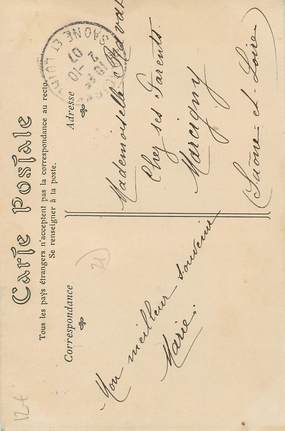 Carte Postale
Tous les pays étrangers n'acceptent pas la correspondance au recto.
Se renseigner à la poste.
Correspondance
Adresse
Mon meilleur souvenir
Marie.
Mademoiselle
Chez ses Parents
Marcigny
Saône-et-Loire
SAONE ET LOIRE
2 -10
07
12€